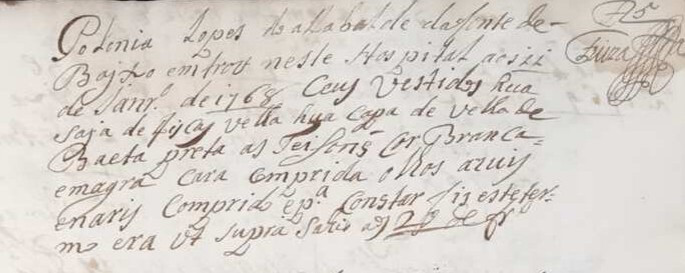 Polonia Lopes do arabalde da fonte de-
Bajxo emtrou neste Hospital aos 11
de Janr.º de 1768 Ceus Vestidos hũa
saja de fiscas velha hua Capa de velha de
Baeta preta as feisonș Cor Branca-
emagra Cara Comprida olhos azuis
enaris Comprido ep.ª Constar fis este ter-
mo era Vt supra Saiu a 29 de